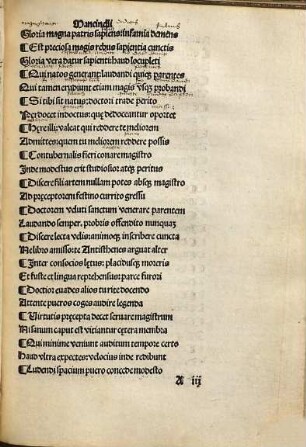 Mancinelli
Gloria magna patris sapiens: infamia demens
¶ Est preciosa magis rebus sapientia cunctis
Gloria vera datur sapienti: haud locupleti
¶ Qui natos generant: laudandi quicq̃ parentes
Qui tamen erudiunt etiam magis vsq̃ probandi
¶ Si tibi sit natus: doctori trade perito
Per docet indoctus: que dedocuntur oportet
¶ Herculi valeat qui reddere te meliorem
Admittes quem tu meliorem reddere possis
¶ Contubernalis fieri conare magistro
Inde modestus erit studiosior atq̃ peritus
¶ Discere fili artem nullam potes absq̃ magistro
Ad preceptorem festino currito gressu
¶ Doctorem veluti sanctum venerare parentem
Laudando semper, probris offendito nunquaʒ
¶ Discere lecta velis: animoq̃ inscribere cuncta
Ne libro amissorte Antisthenes arguat alter
¶ Inter consocios letus: placidusq̃ moreris
Et fuste et lingua reprehensus: parce furori
¶ Doctior euades aliosturire docendo
Attente pueros coges audire legenda
¶ Virtutis precepta decet seruare magistrum
Nisanum caput est vitiantur cetera membra
¶ Qui minime veniunt auditum tempore certo
Haud vltra expectes: velocius inde redibunt
¶ Ludendi spacium puero concede modesto
A iij